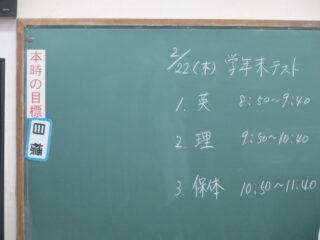 本時の目標
2/22(木) 学年末テスト
1. 英 8:50~9:40
2. 理 9:50~10:40
3. 保体 10:50~11:40